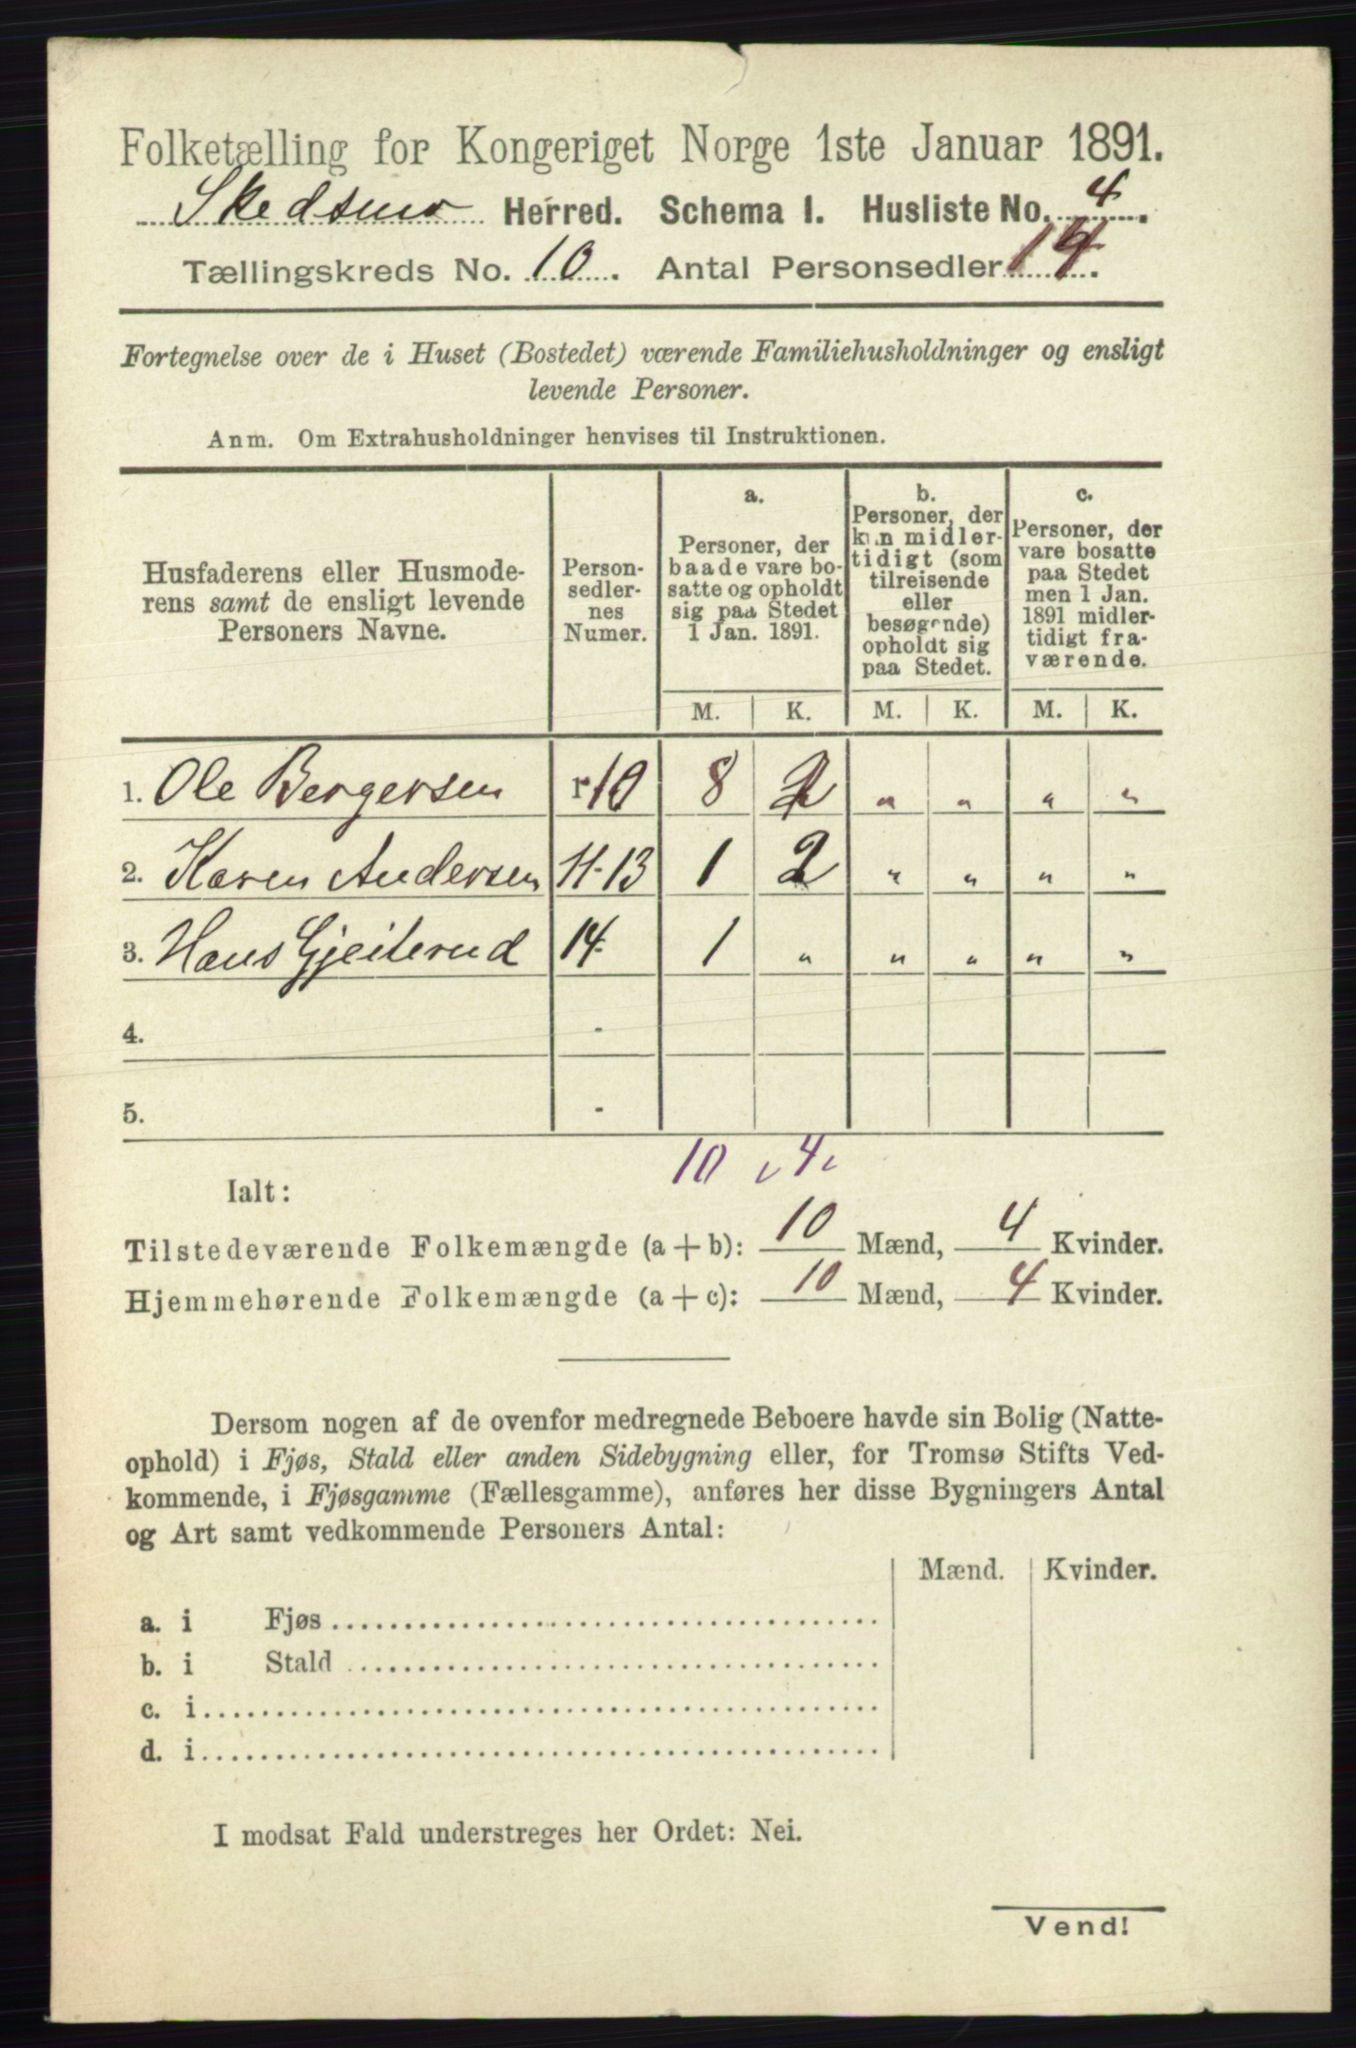 Folketælling for Kongeriget Norge 1ste Januar 1891.
Skedsmo Herred. Schema I. Husliste No. 4.
Tællingskreds No. 10. Antal Personsedler 14.
Fortegnelse over de i Huset (Bostedet) værende Familiehusholdninger og ensligt
levende Personer.
Anm. Om Extrahusholdninger henvises til Instruktionen.
Husfaderens eller Husmode-
rens samt de ensligt levende
Personers Navne.
Person-
sedler-
nes
Numer.
a.
Personer, der
baade vare bo-
satte og opholdt
sig paa Stedet
1 Jan. 1891.
b.
Personer, der
kun midler-
tidigt (som
tilreisende
eller
besøgende)
opholdt sig
paa Stedet.
c.
Personer, der
vare bosatte
paa Stedet
men 1 Jan.
1891 midler-
tidigt fra-
værende.
M. K. M. K. M. K.
1. Ole Bergersen 1-10 8 2 " " " "
2. Karen Andersen 11-13 1 2 " " " "
3. Hans Gjeiterud 14 1 " " " " "
4. -
5. -
10 4
Ialt:
Tilstedeværende Folkemængde (a+b): 10 Mænd, 4 Kvinder.
Hjemmehørende Folkemængde (a+c): 10 Mænd, 4 Kvinder.
Dersom nogen af de ovenfor medregnede Beboere havde sin Bolig (Natte-
ophold) i Fjøs, Stald eller anden Sidebygning eller, for Tromsø Stifts Ved-
kommende, i Fjøsgamme (Fællesgamme), anføres her disse Bygningers Antal
og Art samt vedkommende Personers Antal:
Mænd. Kvinder.
a. i Fjøs
b. i Stald
c. i
d. i
I modsat Fald understreges her Ordet: Nei.
Vend!